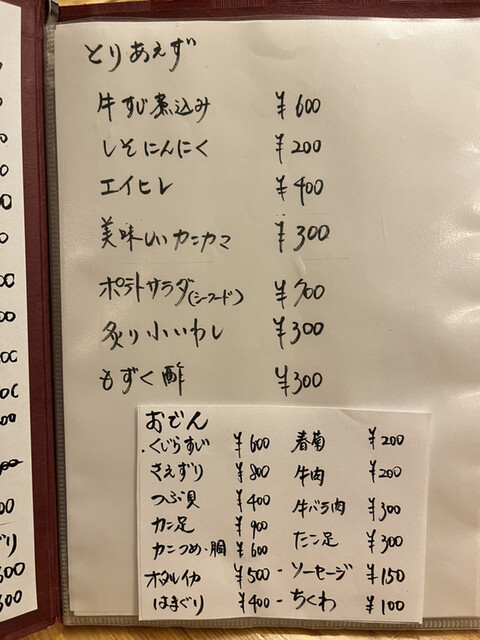 とりあえず
牛すじ煮込み ¥600
しそにんにく ¥200
エイヒレ ¥400
美味しいカニカマ ¥300
ポテトサラダ(シーフード)
炙り小いわし ¥300
もずく酢 ¥300
おでん
くじらすじ ¥600
さえずり ¥800
つぶ貝 ¥400
カニ足 ¥900
カニつめ・胴 ¥600
ホタルイカ ¥500
はまぐり ¥400
春菊 ¥200
牛肉 ¥200
牛バラ肉 ¥300
たこ足 ¥300
ソーセージ ¥150
ちくわ ¥100